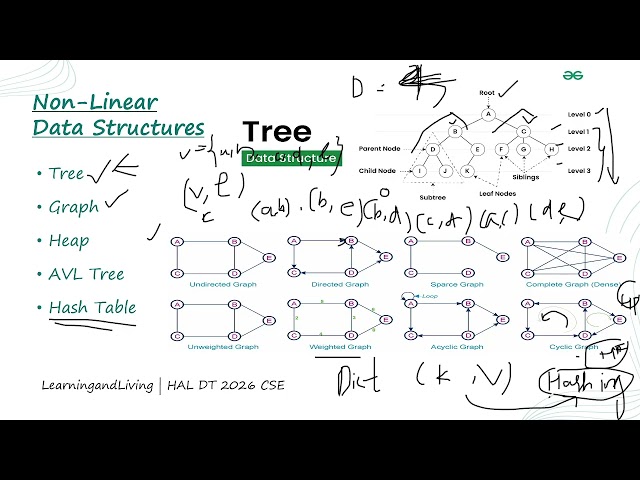 Non-Linear
Data Structures
• Tree
• Graph
• Heap
• AVL Tree
• Hash Table
LearningandLiving | HAL DT 2026 CSE
Tree
Data Structure
D =
(V, E)
(a,b) . (b, e) (b,d) (c,d) (a,c) (d,e)
Root
A
Level 0
B
C
Level 1
Parent Node
D
E
F
G
H
Level 2
Child Node
I
J
K
Level 3
Siblings
Subtree
Leaf Nodes
A B E C D
Undirected Graph
A B E C D
Directed Graph
A B E C D
Sparce Graph
A B E C D
Complete Graph (Dense)
A B E C D
Unweighted Graph
A B E C D
Weighted Graph
Loop
A B E C D
Acyclic Graph
A B E C D
Cyclic Graph
Dict (K, V) Hashing